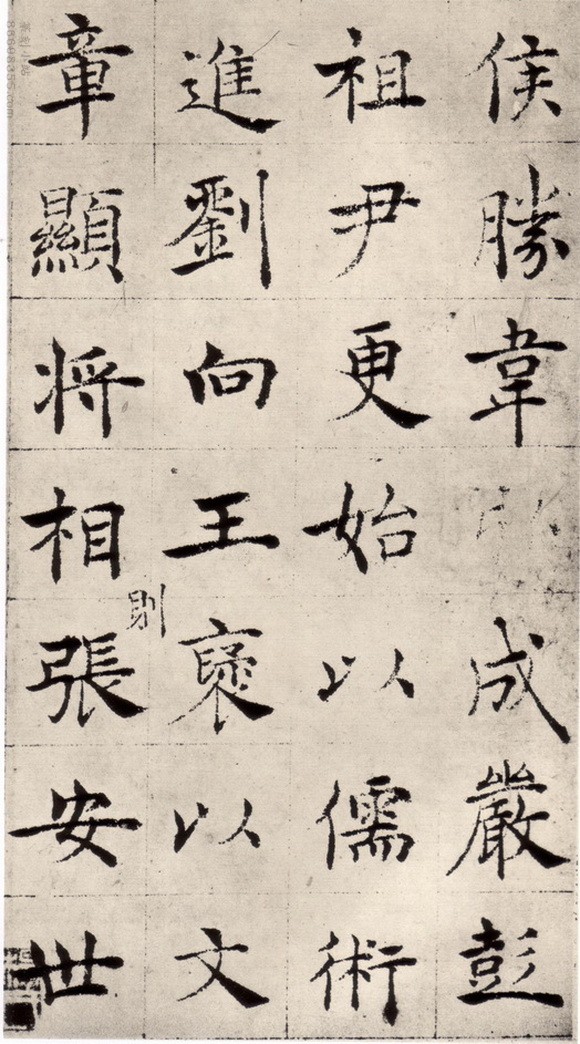 侯勝韋成嚴彭
祖尹更始以儒術
進劉向王褒以文
則
章顯将相張安世